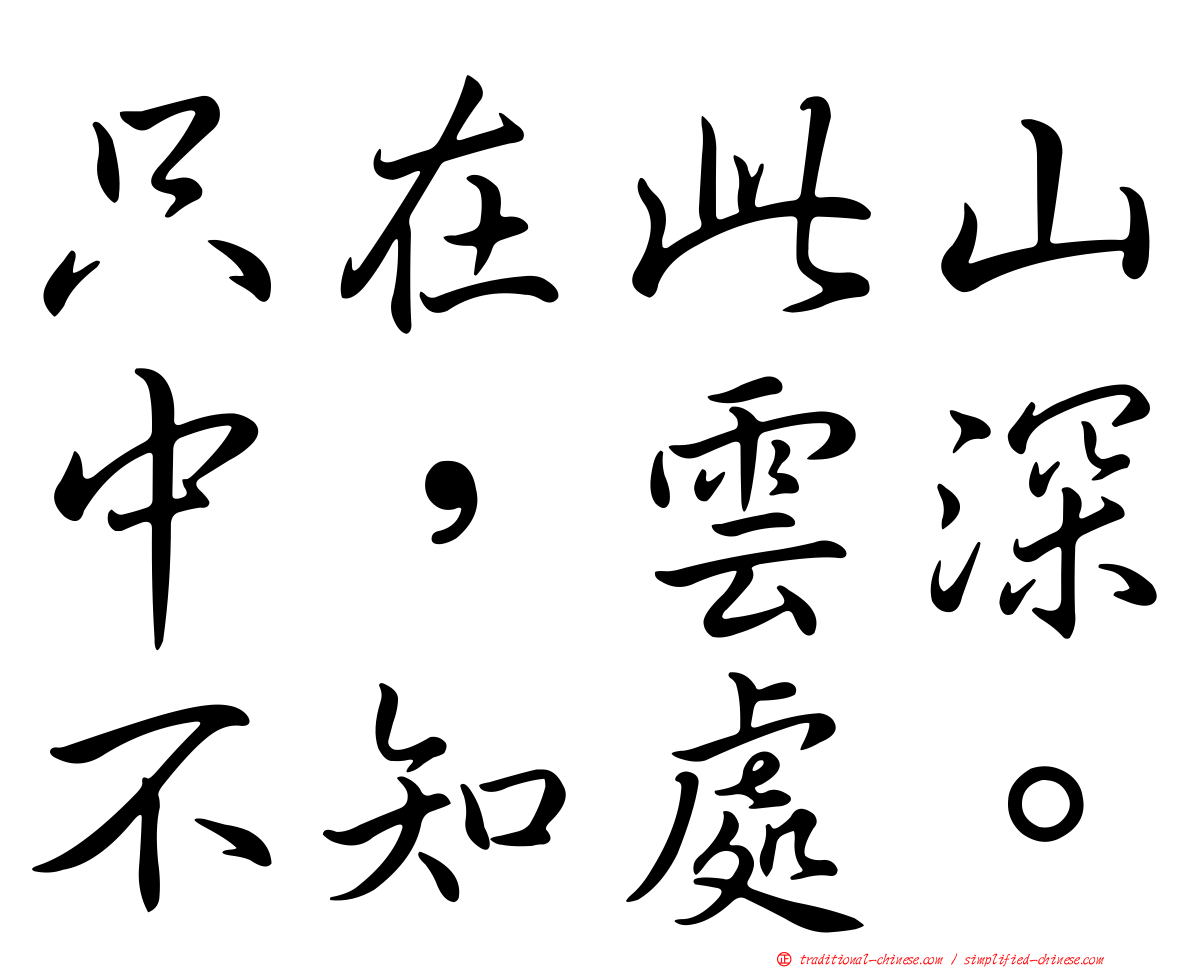 只在此山
中，雲深
不知處。
正 traditional-chinese.com / simplified-chinese.com